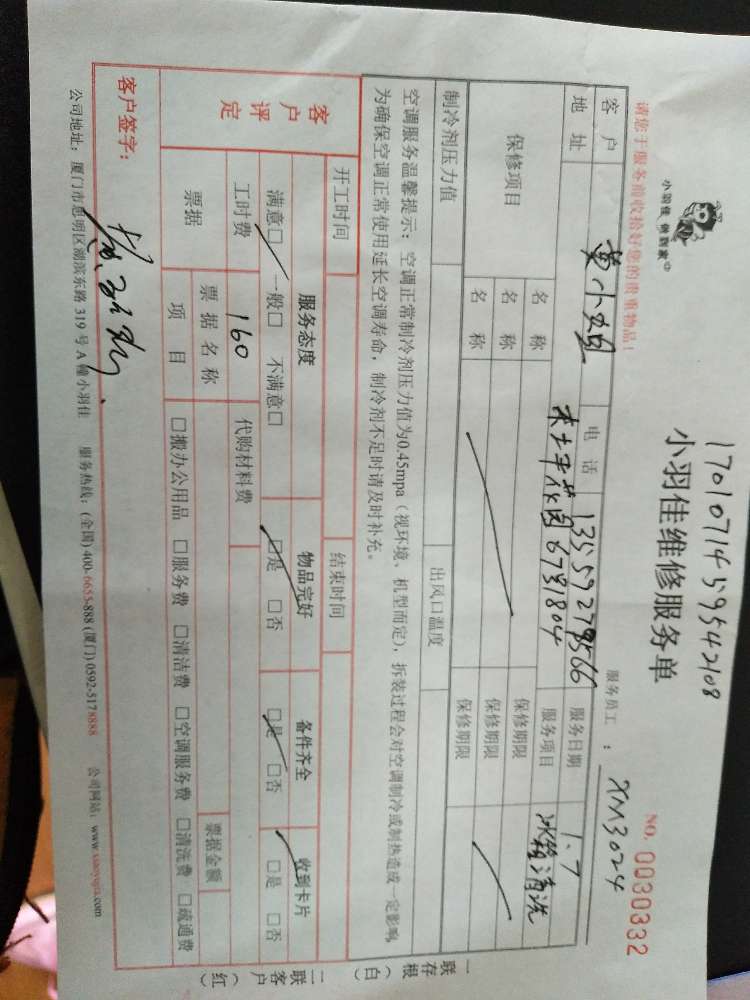 17010714 59542108
小羽佳 做到家
小羽佳维修服务单
NO. 0030332
请您于服务前收拾好您的贵重物品!
服务员工: XM3024
客户 黄小姐 电话 13559278566 服务日期 1.7
地址 6781804 服务项目 冰箱清洗
保修项目 名称 保修期限
名称 保修期限
名称 保修期限
制冷剂压力值 出风口温度
空调服务温馨提示:空调正常制冷剂压力值为0.45mpa(视环境、机型而定),拆装过程会对空调制冷或制热造成一定影响,
为确保空调正常使用延长空调寿命,制冷剂不足时请及时补充。
开工时间 结束时间
客户评定 服务态度 物品完好 备件齐全 收到卡片
满意□ 一般□ 不满意□ □是 □否 □是 □否 □是 □否
工时费 160 代购材料费
票据 票据名称 票据金额
项目 □搬办公用品 □服务费 □清洁费 □空调服务费 □清洗费 □疏通费
客户签字:
公司地址:厦门市思明区湖滨东路319号A幢小羽佳 服务热线:(全国)400-6655-888 (厦门)0592-5178888 公司网站:www.xiaoyujia.com
一联存根(白)
二联客户(红)